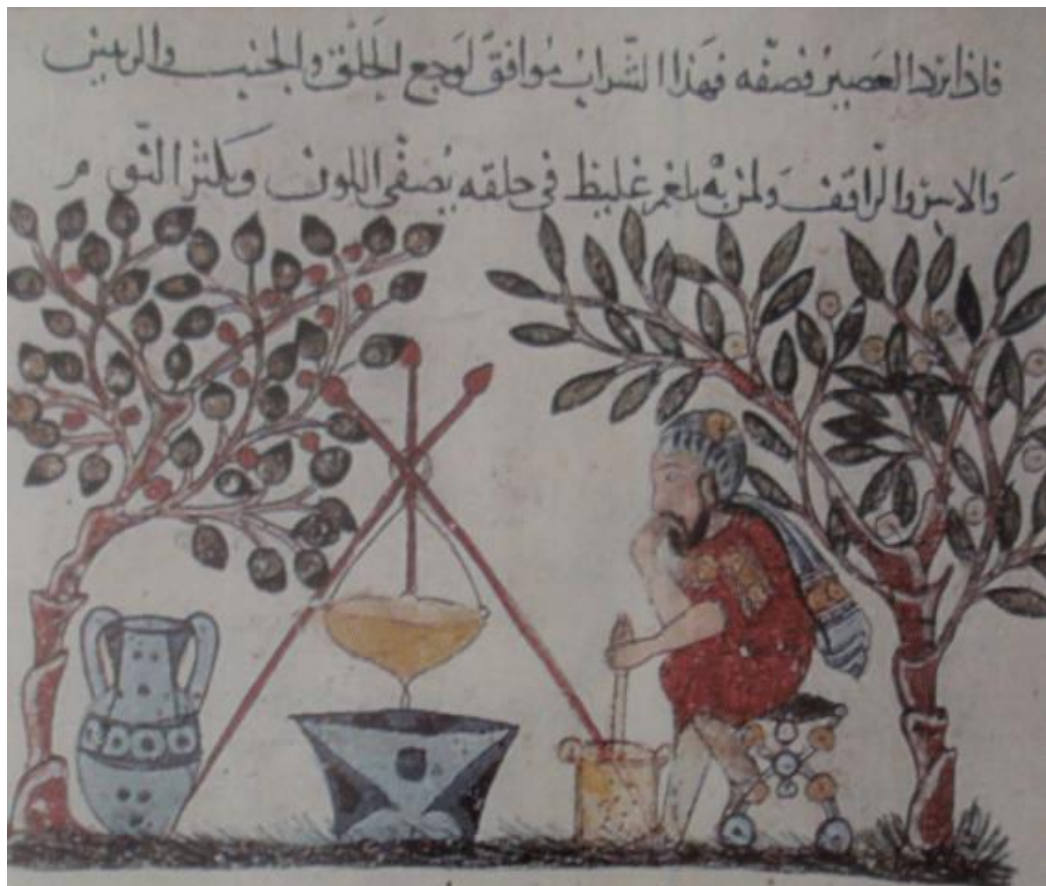 فاذا برد العصير فصفّه فهذا الشّراب موافق لوجع الحلق والجنب والرئتين
والراقف ولمن به بلغم غليظ في حلقه يصفى اللون ويكثر النوم